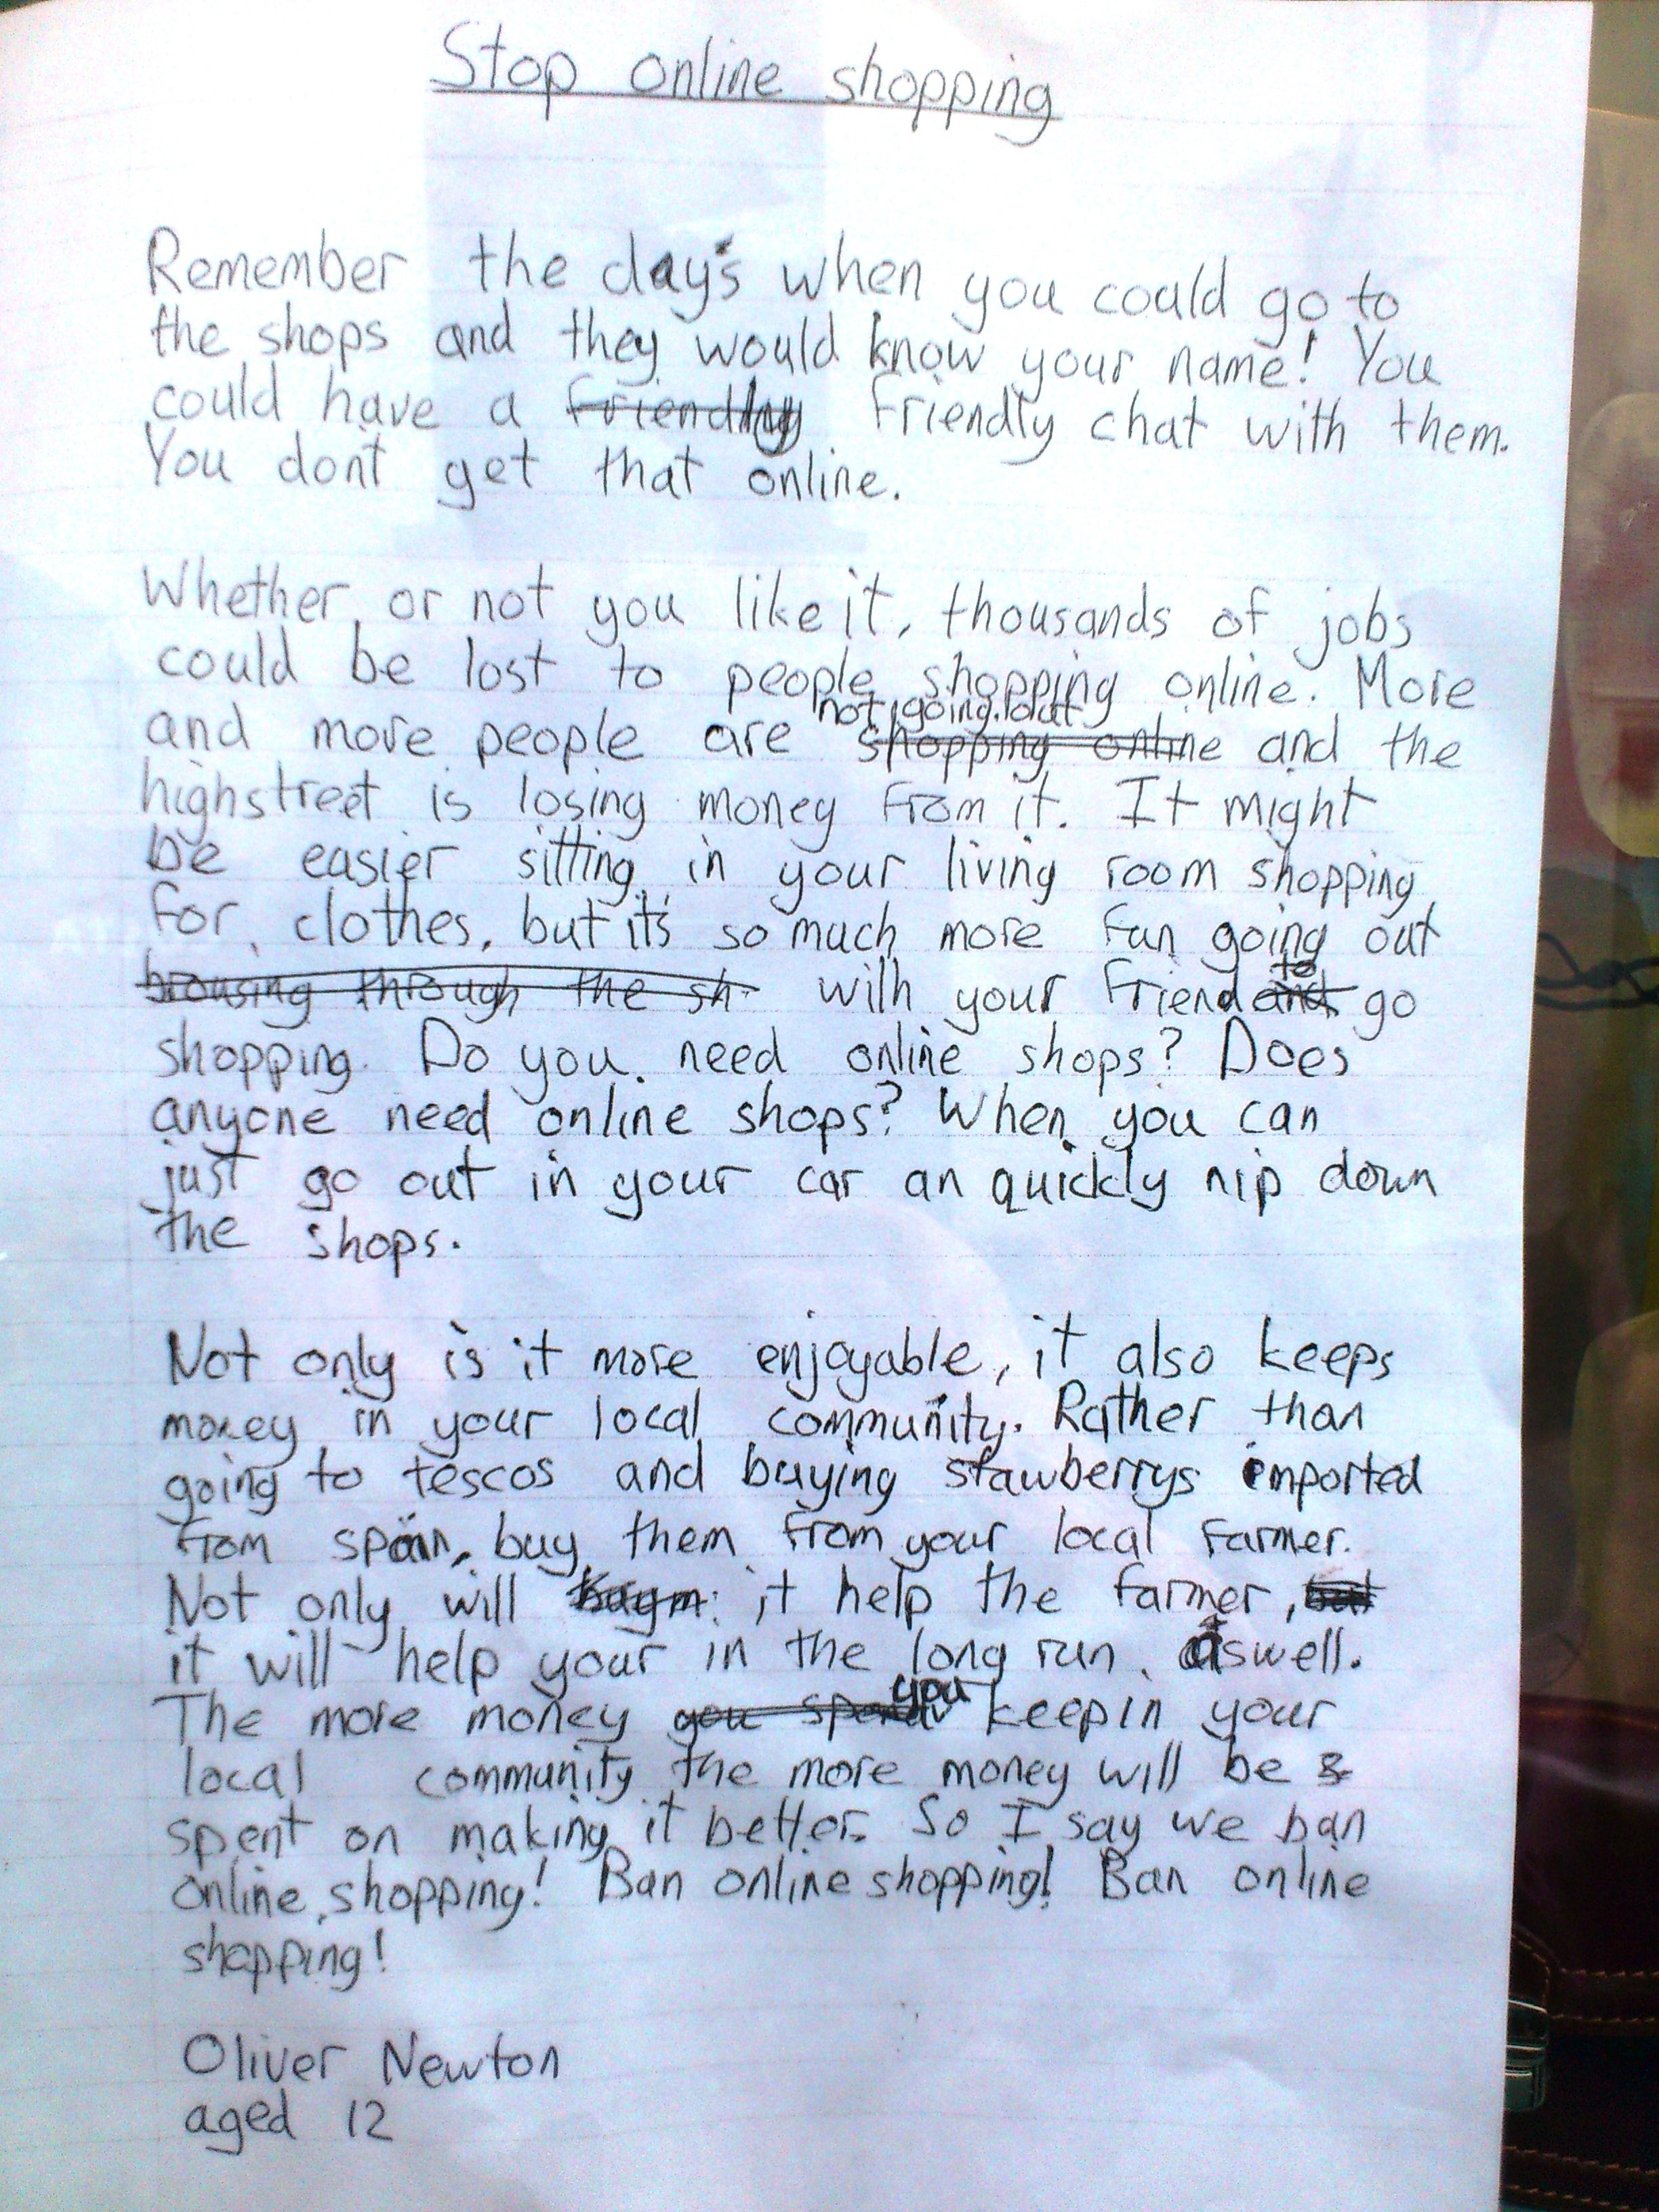 Stop online shopping
Remember the day's when you could go to
the shops and they would know your name! You
could have a friendly friendly chat with them.
You don't get that online.
Whether or not you like it, thousands of jobs
could be lost to people shopping online. More
not going out
and more people are shopping online and the
highstreet is losing money from it. It might
be easier sitting in your living room shopping
for clothes, but it's so much more fun going out
to
browsing through the sh with your friend and go
shopping. Do you need online shops? Does
anyone need online shops? When you can
just go out in your car an quickly nip down
the shops.
Not only is it more enjoyable, it also keeps
money in your local community. Rather than
going to tescos and buying stawberrys imported
from spain, buy them from your local farmer.
Not only will it help the farmer, but
it will help your in the long run. aswell.
you
The more money you spend keep in your
local community the more money will be
spent on making it better. So I say we ban
online shopping! Ban online shopping! Ban online
shopping!
Oliver Newton
aged 12